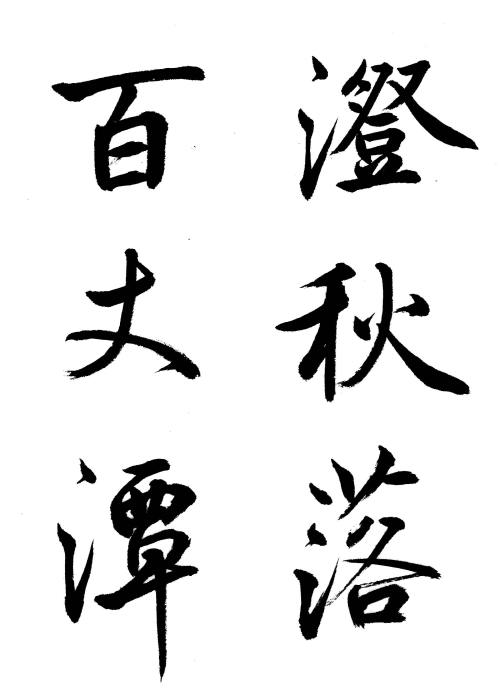 澄秋落
百丈潭